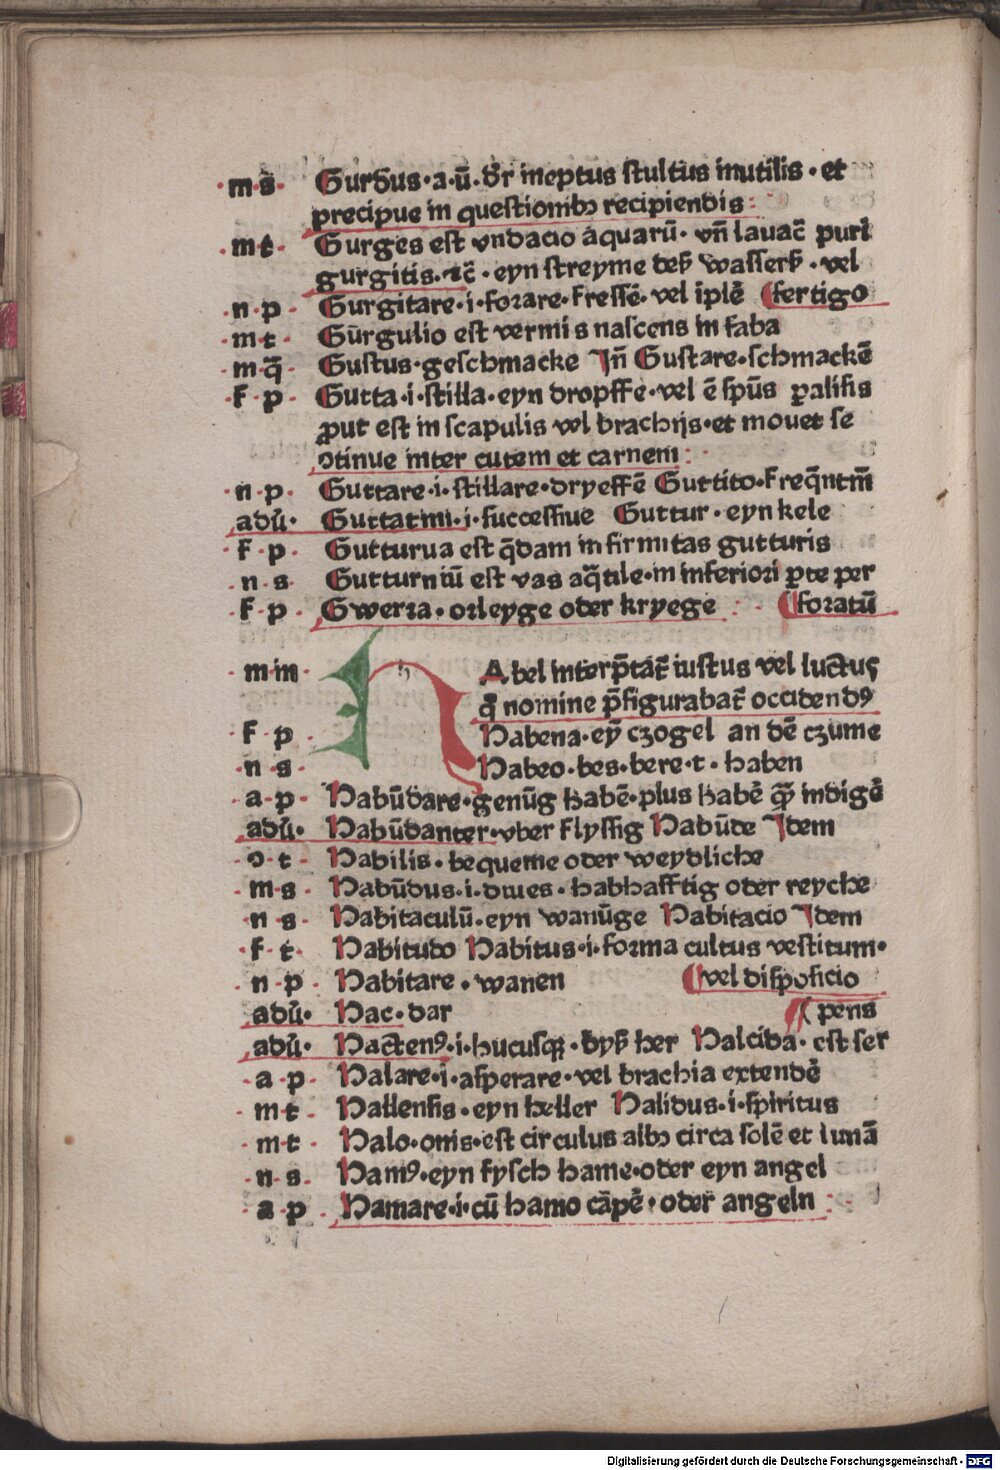 ·m·s· Gurdus·a·ū·dr̄ ineptus stultus inutilis·et
precipue in questionibꝫ recipiendis:
·m·t· Gurges est vndacio aquarū·vn̄ lauac̄ puri
gurgitis·⁊c̄·eyn streyme deß wasserß·vel
·n·p· Gurgitare·i·forare·fressē·vel iplē ⸿fertigo
·m·t· Gūrgulio est vermis nascens in faba
·m·q̄· Gustus·geschmacke Jn̄ Gustare·schmackē
·f·p· Gutta·i·stilla·eyn dropffe·vel ē spūs ꝑalisis
ꝓut est in scapulis vel brachijs·et mouet se
ↄtinue inter cutem et carnem:
·n·p· Guttare·i·stillare·dryeffē Guttito·freq̄ntm̄
adū· Guttatim·i·successiue Guttur·eyn kele
·f·p· Gutturua est q̄dam infirmitas gutturis
·n·s· Gutturniū est vas aq̄tile·in inferiori ꝑte per
·f·p· Gwerra·orleyge oder kryege: ⸿foratū
·m·m· HAbel interp̄tat̄ iustus vel luctus
q̄ nomine p̄figurabat̄ occidendꝰ
f p Habena·ey̅ czogel an dē czume
·n·s· Habeo·bes·bere·t·haben
·a·p· Habūdare·genūg habē·plus habē qꝫ̄ indigē
adū· Habūdanter·vber flyssig Habūde Jdem
·ↄ·t· Habilis·bequeme oder weydliche
·m·s· Habūdus·i·diues·habhafftig oder reyche
·n·s· Habitaculū·eyn wanūge Habitacio Jdem
·f·t· Habitudo Habitus·i·forma cultus vestitum·
·n·p· Habitare·wanen ⸿vel disposicio
adū· Hac·dar ⸿pens
adū· Hactenꝰ·i·hucusqꝫ·dyß her Halcida·est ser
·a·p· Halare·i·asperare·vel brachia extendē
·m·t· Hallensis·eyn heller Halidus·i·spiritus
·m·t· Halo·onis·est circulus albꝫ circa solē et lunā
·n·s· Hamꝰ·eyn fysch hame·oder eyn angel
·a·p· Hamare·i·cū hamo cāpē·oder angeln:
Digitalisierung gefördert durch die Deutsche Forschungsgemeinschaft - DFG